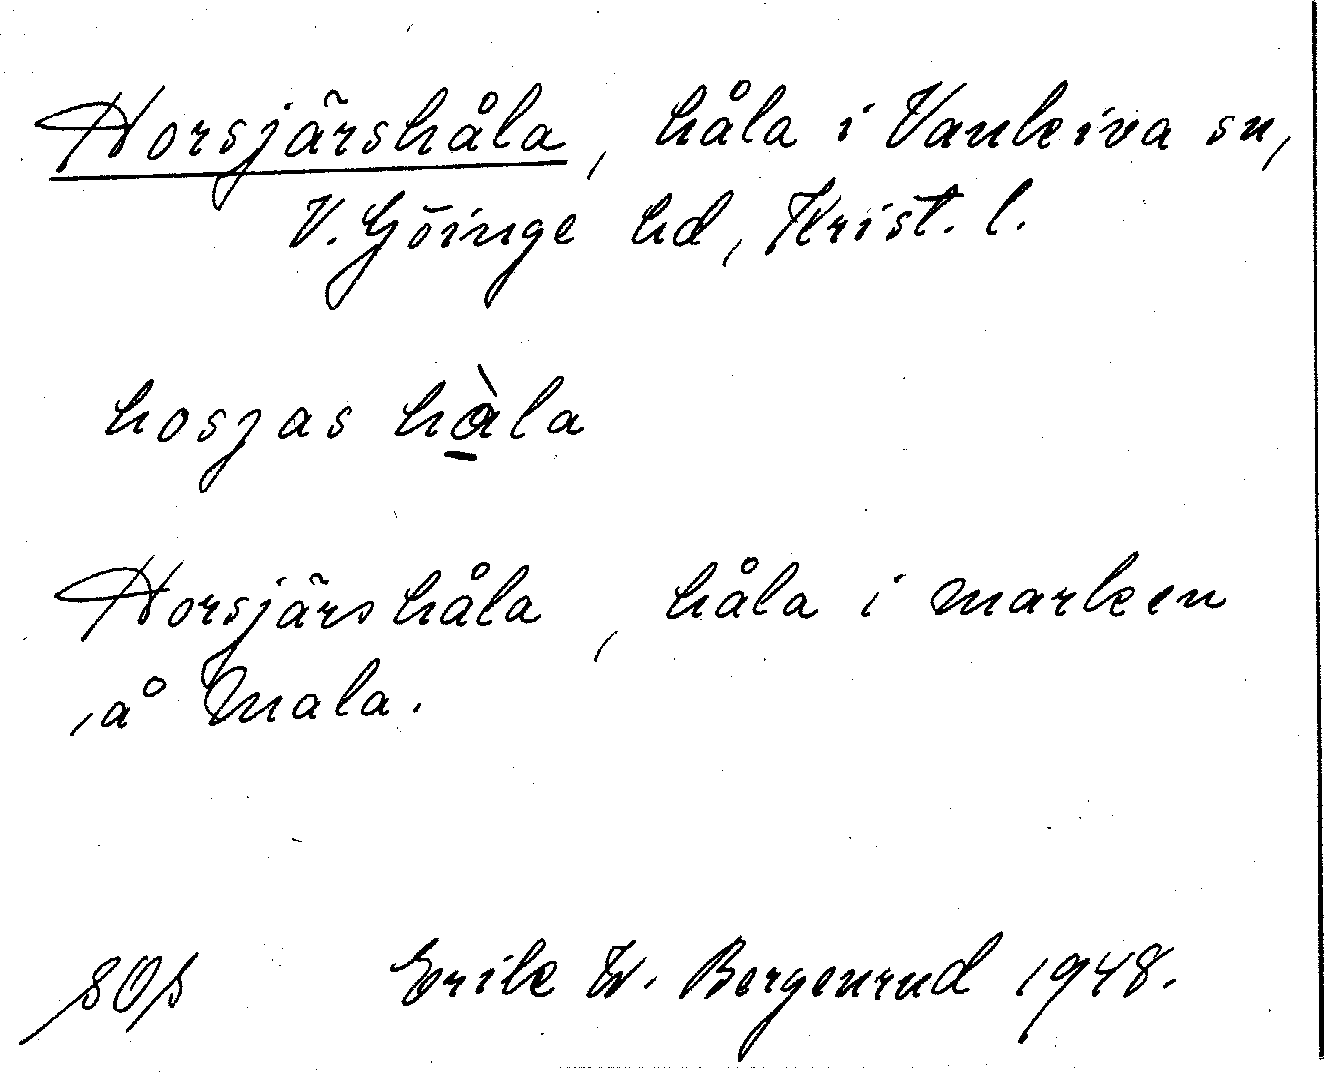 Horsjärshåla, håla i Vankiva sn,
V. Göinge hd, Krist. l.
hosjas hàla
Horsjärshåla, håla i marken
på Mala.
Erik W. Bergenrud 1948.